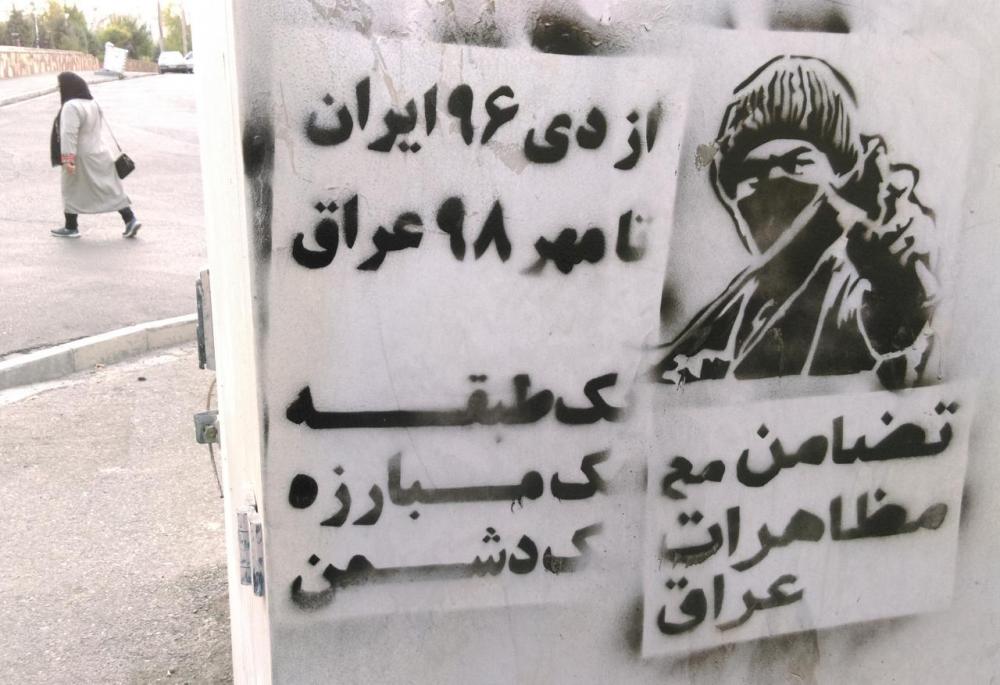 از دی ۹۶ ایران
تا مهر ۹۸ عراق
یک طبقه
یک مبارزه
یک دشمن
تضامن مع
مظاهرات
عراق